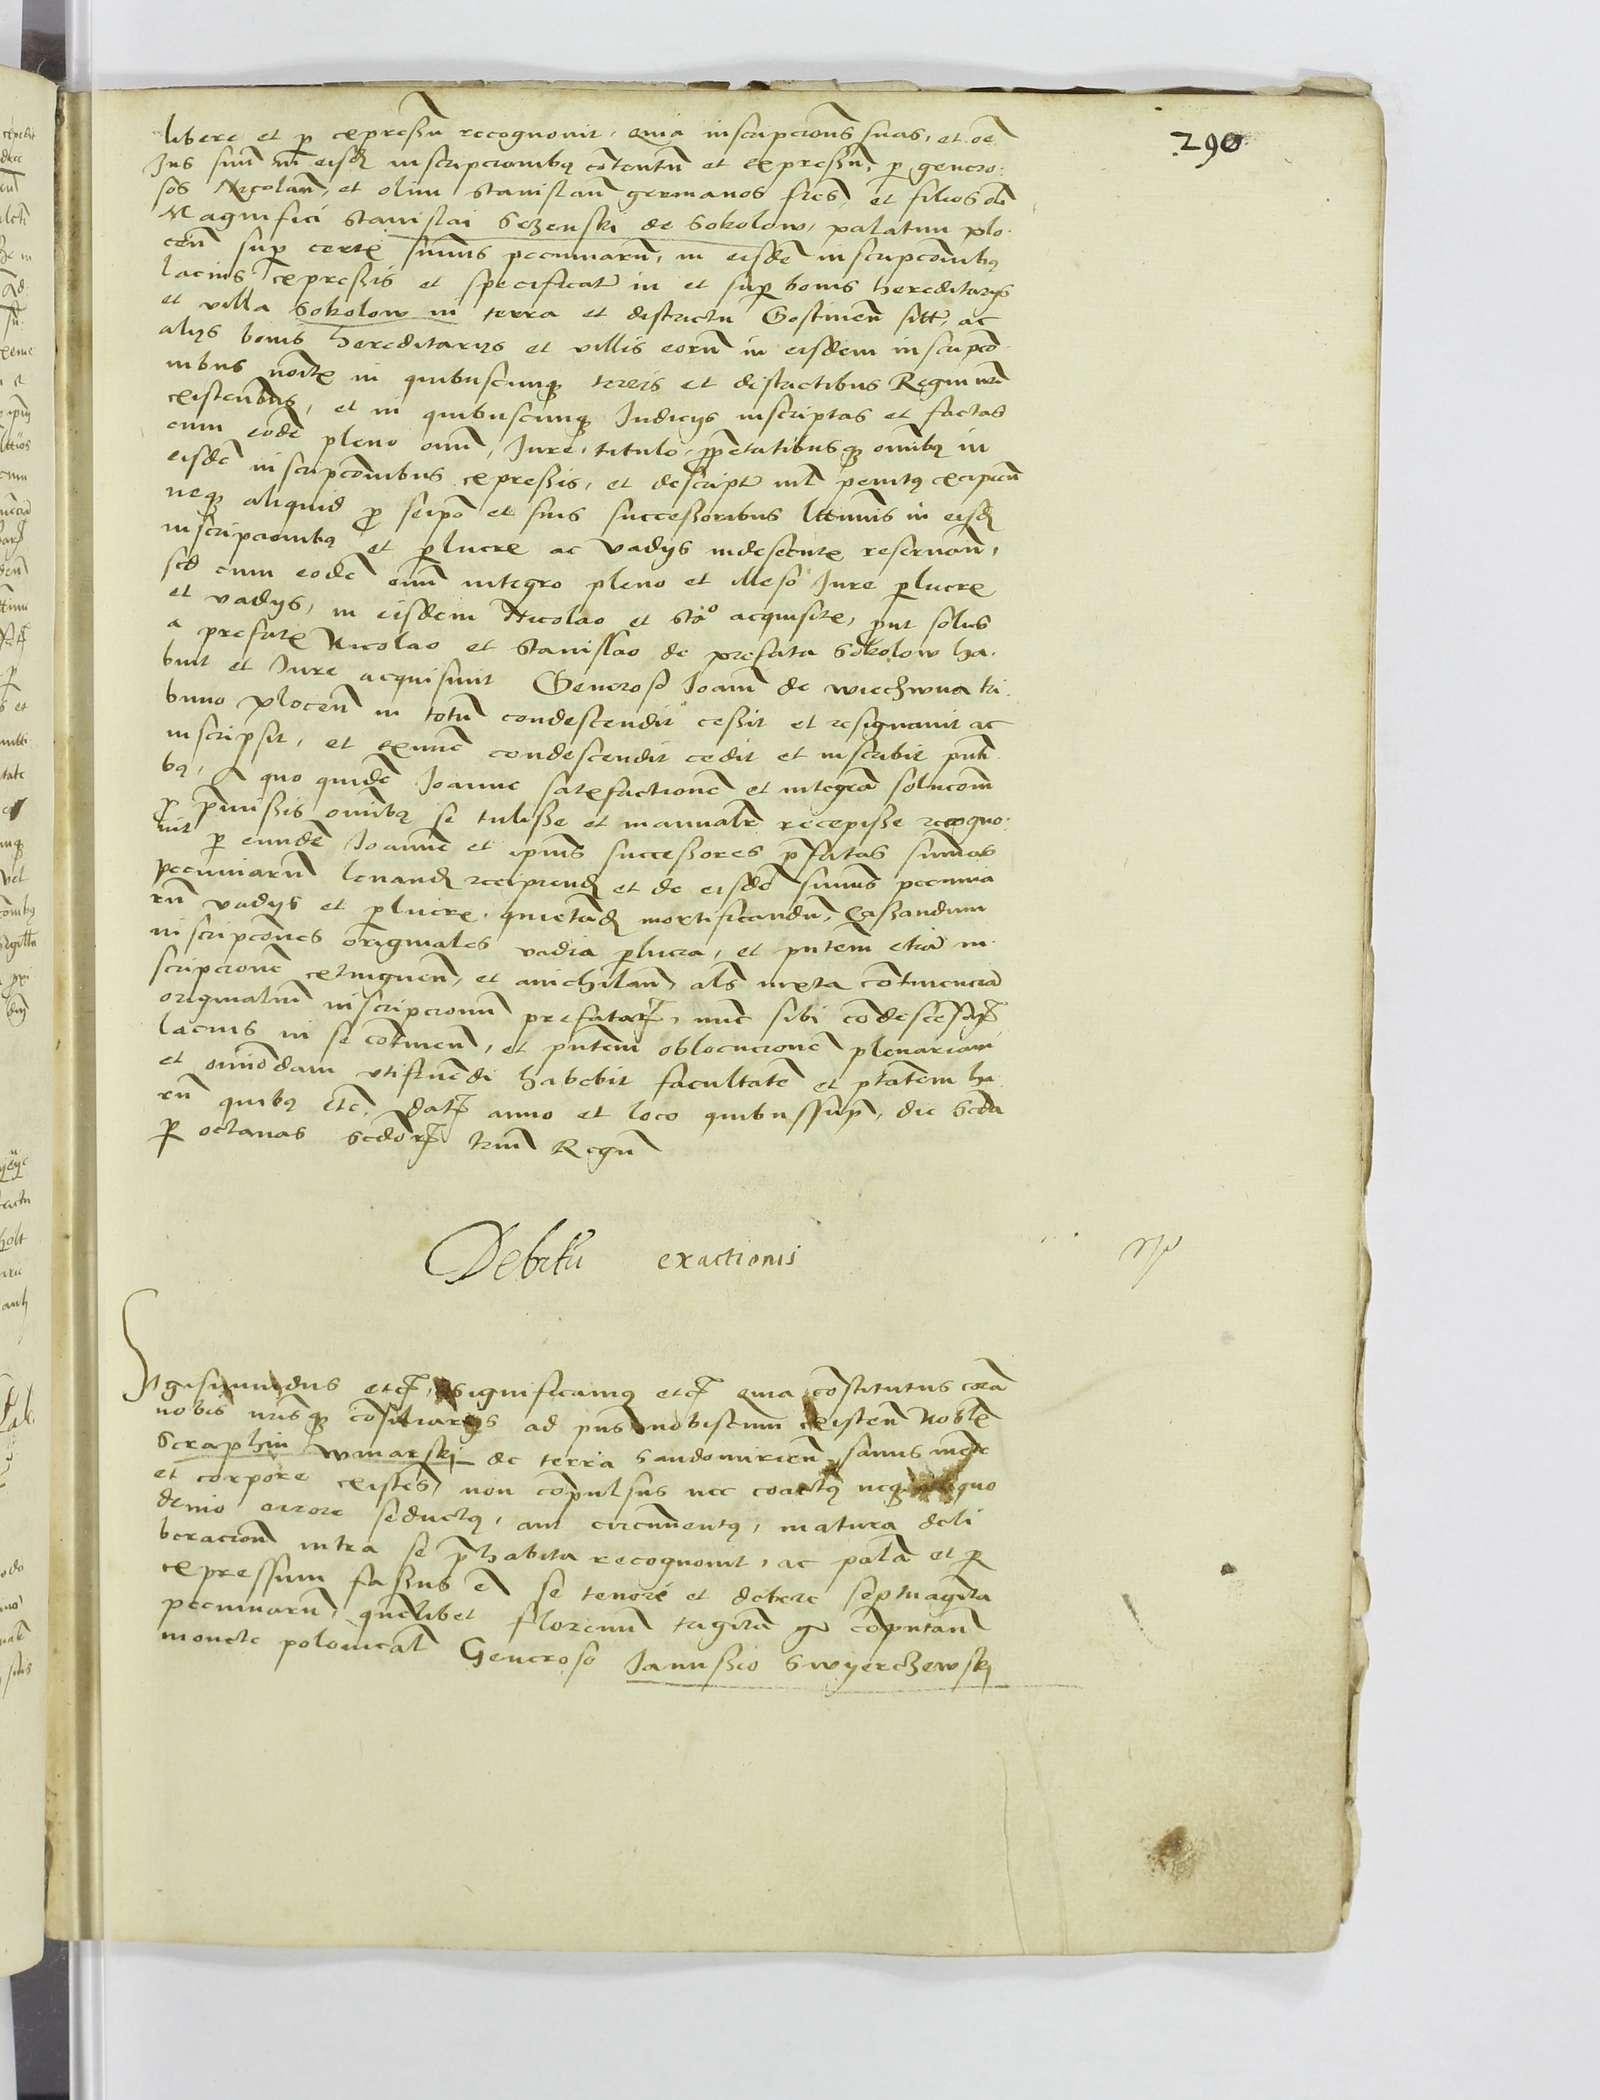 290
libere et p expressu recognovit, quia inscripciones suas, et oe
Jus suu in eisd inscripcionibus cotentu et expressu, p genero:
sos Nicolau, et olim Stanislau germanos fres, et filios oli
Magnifici Stanislai Sczenski de Sokolow, palatini plo.
cen sup certe sumis pecuniaru, in eisde inscripconibus
lacius expressis et specificat in et sup bonis hereditarys
et villa Sokolow in terra et districtu Gostinen sitt, ac
alys bonis hereditarys et villis eoru in eisdem inscripco
nibus noite in quibuscunq terris et districtibus Regni nri
existentibus, et in quibuscunq Judicys inscriptas et factas
cum eode pleno omi, Jure, titulo, ppetatibusq omibus in
eisde inscripconibus expressis, et descript nil penitus excipien
neq aliquid p seipo et suis successoribus lttimis in eisd
inscripcionibus et p lucre ac vadys indesecute reservan,
sed cum eode omi integro pleno et illeso Jure p lucre
et vadys, in eisdem Nicolao et Stao acquisite, put solus
a prefate Nicolao et Stanislao de prefata Sokolow ha.
buit et Jure acquisivit Generoso Joani de wiechwna tri
buno plocen in totu condescendit cessit et resignavit ac
inscripsit, et exnunc condescendit cedit et inscribit pnti
bus, A quo quide Joanne satisfactione et integra solucom
p pmissis omibus se tulisse et manualr recepisse recogno.
vit p eunde Joanne et ipius successores pfatas sumas
pecuniaru levand recipiend et de eisde sumis pecunia
ru vadys et p lucre quietad mortificandu, Cassandum
inscripcones originales vadia p lucra, et pntem etia in
scripcione extinguen, et anichilan, als iuxta continencia
originaliu inscripcionu prefatar, nunc sibi codescesar
lacius in se contineñ, et pntem oblocucione plenariam
et omiodam utifruedi habebit facultate et ptatem ha
ru quibus etc, dat anno et loco quibus sup, die scda
p octavas scdor triu Regu
Debitu exactionis
Sigismundus etc, significamus etc quia constitutus cora
nobis nrisq consiliarys ad pns nobiscum existen Noble
Seraphin wmarski de terra Sandomirien, sanus mete
et corpore existes, non conpulsus nec coactus neq aliquo
devio errore seductus, aut circumventus, matura deli
beracion intra se p habita recognovit, ac pala et p
expressum fassus e se teneri et debere septuaginta
pecuniaru, quelibet florenu triginta gr computan
monete polonicalr Generoso Janussio Swyerczewski